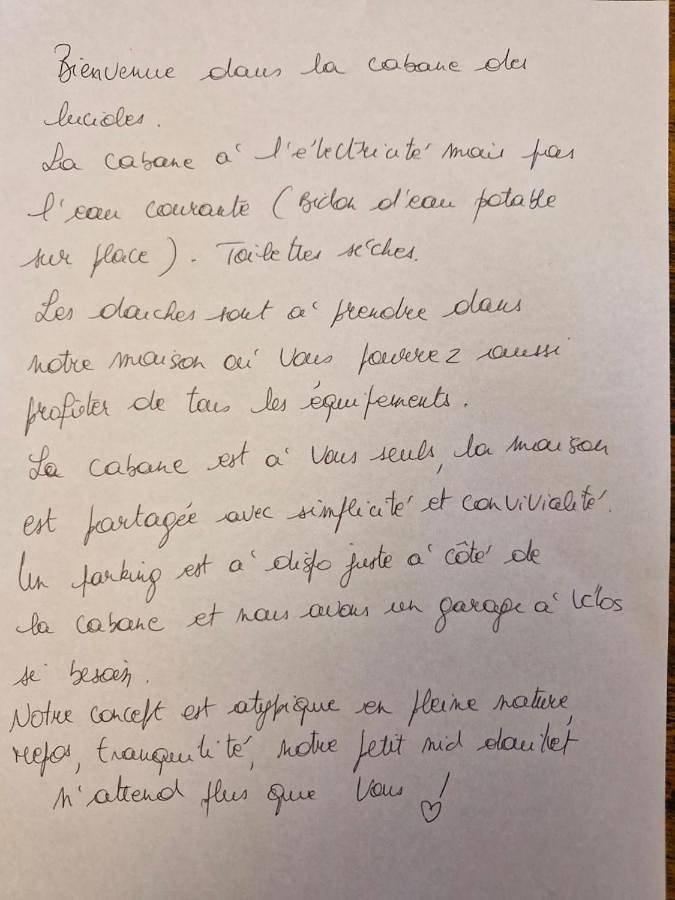 Bienvenue dans la cabane des
lucioles.
La cabane à l'électricité mais pas
l'eau courante (Bidon d'eau potable
sur place). Toilettes sèches.
Les douches sont à prendre dans
notre maison où vous pourrez aussi
profiter de tous les équipements.
La cabane est à vous seuls, la maison
est partagée avec simplicité et convivialité.
Un parking est à dispo juste à côté de
la cabane et nous avons un garage à vélos
si besoin.
Notre concept est atypique en pleine nature,
repos, tranquilité, notre petit nid douillet
n'attend plus que vous ! ♡